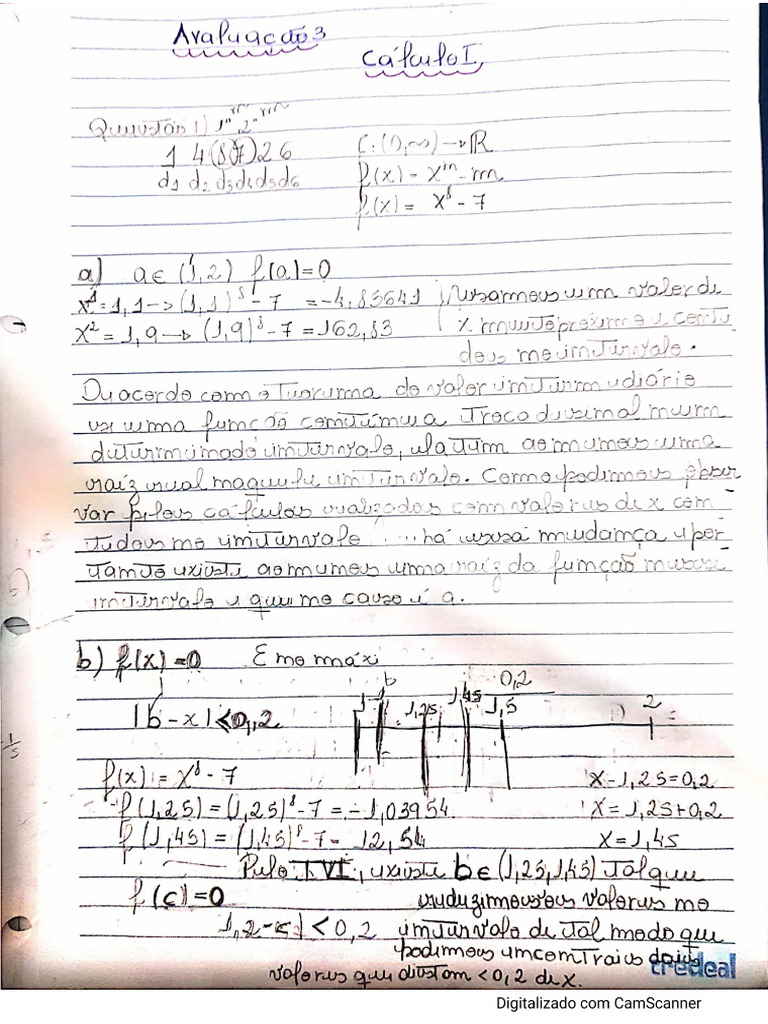 Avaluacão 3
Cálculo I
Questão 1) 1º m 2º m
1 4 (8)(7) 2 6
d1 d2 d3 d4 d5 d6
f: (0,∞) → R
f(x) = x^n - m
f(x) = x^8 - 7
a) a ∈ (1,2) f(a) = 0
x^1 = 1,1 → (1,1)^8 - 7 = -4,85641
x^2 = 1,9 → (1,9)^8 - 7 = 162,83
Usarmos um valor de
x muito próximo e conti
dos no intervalo.
De acordo com o Teorema do valor intermediário
se uma função contínua troca de sinal num
determinado intervalo, ela tem ao menos uma
raiz real naquele intervalo. Como podemos obser
var pelos cálculos realizados com valores de x con
tidos no intervalo .... há essa mudança e por
tanto existe ao menos uma raiz da função nesse
intervalo e que no caso é a.
b) f(x) = 0 E no máxi
|b - x| < 0,2
1 b 1,25 1,45 1,5 0,2 2
f(x) = x^8 - 7
f(1,25) = (1,25)^8 - 7 = -1,03954
f(1,45) = (1,45)^8 - 7 = 12,54
x - 1,25 = 0,2
x = 1,25 + 0,2
x = 1,45
Pelo TVI, existe b ∈ (1,25, 1,45) tal que
f(c) = 0
reduzimos os valores no
1,2 - c| < 0,2 intervalo de tal modo que
podemos encontrar dois
valores que distam < 0,2 de x.
tredeal
Digitalizado com CamScanner